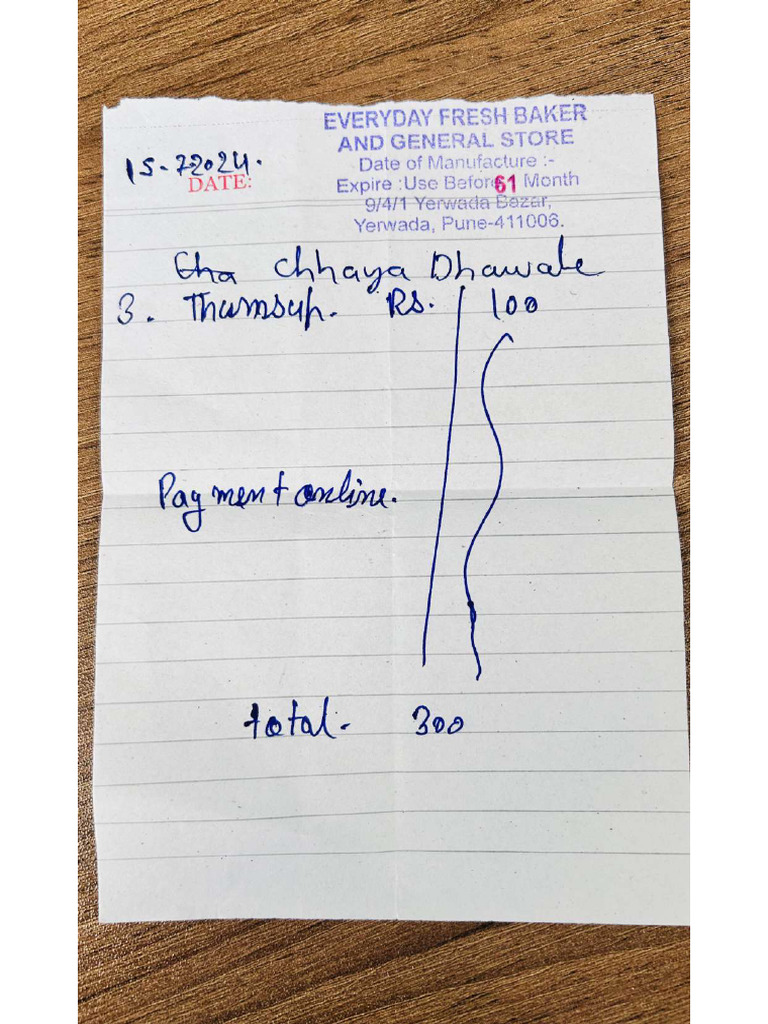 EVERYDAY FRESH BAKER
AND GENERAL STORE
Date of Manufacture :-
Expire :Use Before 61 Month
9/4/1 Yerwada Bazar,
Yerwada, Pune-411006.
15-72024.
DATE:
Cha Chhaya Dhawale
3. Thumsup. Rs. 100
Payment online.
total- 300